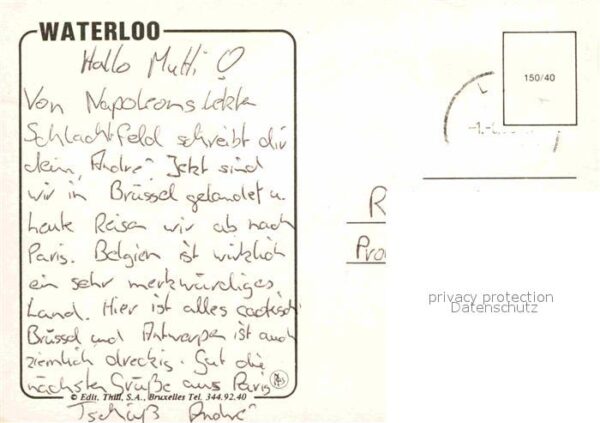 WATERLOO
Hallo Mutti
Von Napoleons letzten
Schlachtfeld schreibt dir
dein, André. Jetzt sind
wir in Brüssel gelandet u.
heute Reisen wir ab nach
Paris. Belgien ist wirklich
ein sehr merkwürdiges
Land. Hier ist alles caotisch
Brüssel und Antwerpen ist auch
ziemlich dreckig. Gut die
nächsten Grüße aus Paris
© Edit. Thill, S.A., Bruxelles Tel. 344.92.40
Tschüß André
150/40
R
Pro
privacy protection
Datenschutz